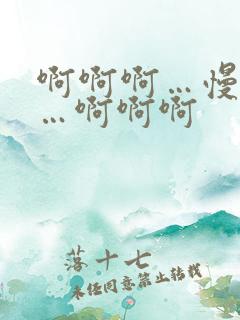 啊啊啊…慢
…啊啊啊
落十七
未经同意禁止转载